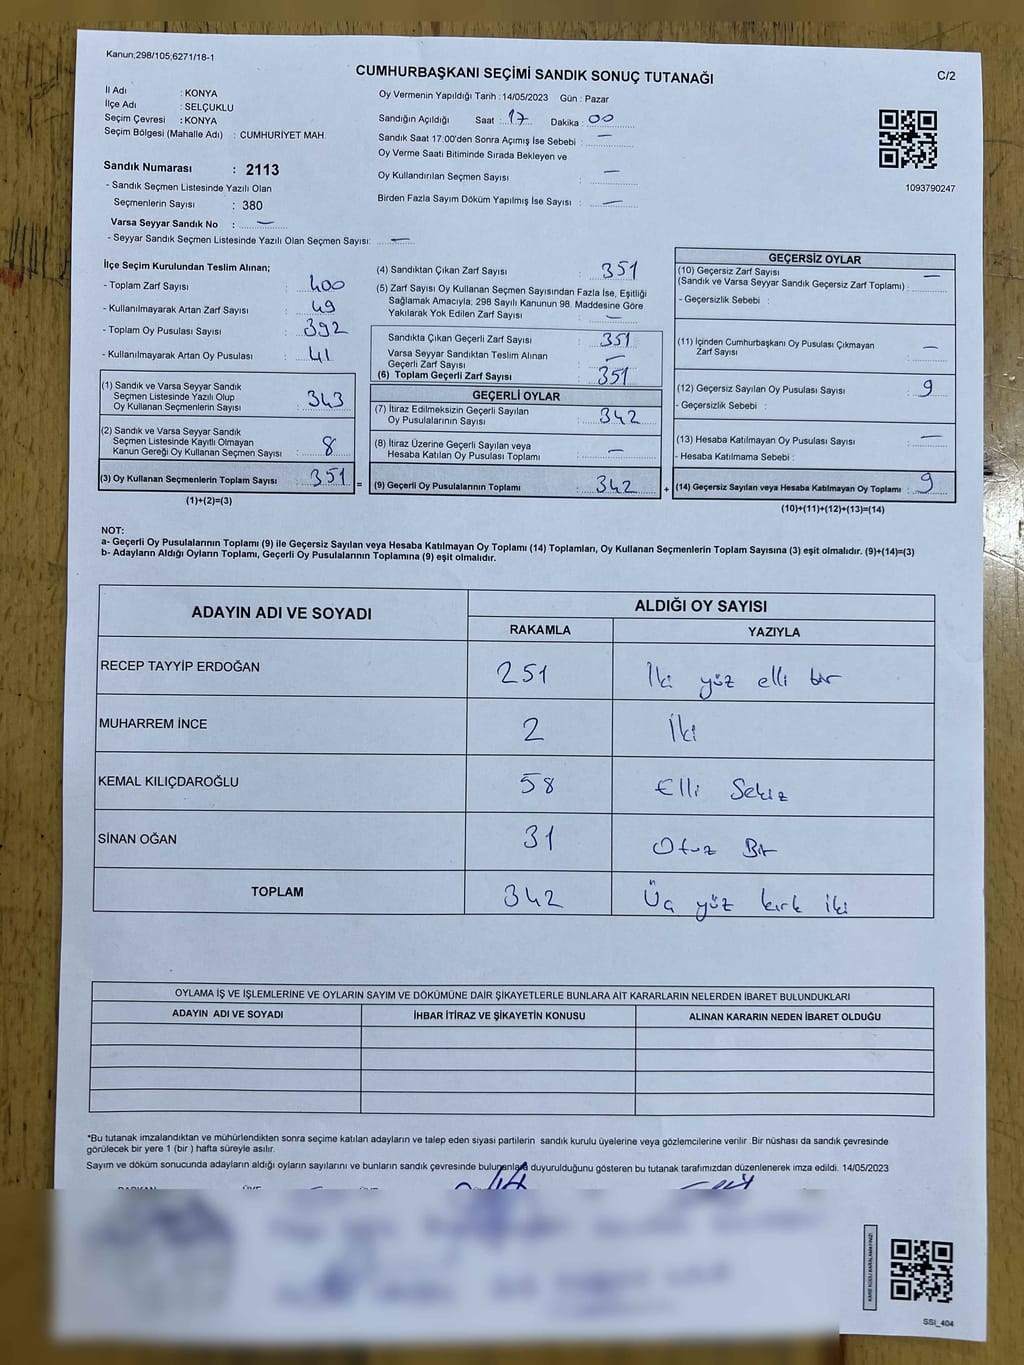 Kanun;298/105;6271/18-1
CUMHURBAŞKANI SEÇİMİ SANDIK SONUÇ TUTANAĞI
C/2
İl Adı : KONYA
İlçe Adı : SELÇUKLU
Seçim Çevresi : KONYA
Seçim Bölgesi (Mahalle Adı) : CUMHURİYET MAH.
Sandık Numarası : 2113
- Sandık Seçmen Listesinde Yazılı Olan
Seçmenlerin Sayısı : 380
Varsa Seyyar Sandık No : —
- Seyyar Sandık Seçmen Listesinde Yazılı Olan Seçmen Sayısı: —
Oy Vermenin Yapıldığı Tarih : 14/05/2023 Gün : Pazar
Sandığın Açıldığı Saat : 17 Dakika : 00
Sandık Saat 17:00'den Sonra Açımış İse Sebebi : —
Oy Verme Saati Bitiminde Sırada Bekleyen ve
Oy Kullandırılan Seçmen Sayısı : —
Birden Fazla Sayım Döküm Yapılmış İse Sayısı : —
1093790247
İlçe Seçim Kurulundan Teslim Alınan;
- Toplam Zarf Sayısı : 400
- Kullanılmayarak Artan Zarf Sayısı : 49
- Toplam Oy Pusulası Sayısı : 392
- Kullanılmayarak Artan Oy Pusulası : 41
(1) Sandık ve Varsa Seyyar Sandık
Seçmen Listesinde Yazılı Olup
Oy Kullanan Seçmenlerin Sayısı : 343
(2) Sandık ve Varsa Seyyar Sandık
Seçmen Listesinde Kayıtlı Olmayan
Kanun Gereği Oy Kullanan Seçmen Sayısı : 8
(3) Oy Kullanan Seçmenlerin Toplam Sayısı : 351 =
(1)+(2)=(3)
(4) Sandıktan Çıkan Zarf Sayısı : 351
(5) Zarf Sayısı Oy Kullanan Seçmen Sayısından Fazla İse, Eşitliği
Sağlamak Amacıyla; 298 Sayılı Kanunun 98. Maddesine Göre
Yakılarak Yok Edilen Zarf Sayısı : —
Sandıkta Çıkan Geçerli Zarf Sayısı : 351
Varsa Seyyar Sandıktan Teslim Alınan
Geçerli Zarf Sayısı : —
(6) Toplam Geçerli Zarf Sayısı : 351
GEÇERLİ OYLAR
(7) İtiraz Edilmeksizin Geçerli Sayılan
Oy Pusulalarının Sayısı : 342
(8) İtiraz Üzerine Geçerli Sayılan veya
Hesaba Katılan Oy Pusulası Toplamı : —
(9) Geçerli Oy Pusulalarının Toplamı : 342 +
GEÇERSİZ OYLAR
(10) Geçersiz Zarf Sayısı —
(Sandık ve Varsa Seyyar Sandık Geçersiz Zarf Toplamı) :
- Geçersizlik Sebebi :
(11) İçinden Cumhurbaşkanı Oy Pusulası Çıkmayan
Zarf Sayısı : —
(12) Geçersiz Sayılan Oy Pusulası Sayısı : 9
- Geçersizlik Sebebi :
(13) Hesaba Katılmayan Oy Pusulası Sayısı : —
- Hesaba Katılmama Sebebi :
(14) Geçersiz Sayılan veya Hesaba Katılmayan Oy Toplamı : 9
(10)+(11)+(12)+(13)=(14)
NOT:
a- Geçerli Oy Pusulalarının Toplamı (9) ile Geçersiz Sayılan veya Hesaba Katılmayan Oy Toplamı (14) Toplamları, Oy Kullanan Seçmenlerin Toplam Sayısına (3) eşit olmalıdır. (9)+(14)=(3)
b- Adayların Aldığı Oyların Toplamı, Geçerli Oy Pusulalarının Toplamına (9) eşit olmalıdır.
ADAYIN ADI VE SOYADI ALDIĞI OY SAYISI
RAKAMLA YAZIYLA
RECEP TAYYİP ERDOĞAN 251 İki yüz elli bir
MUHARREM İNCE 2 İki
KEMAL KILIÇDAROĞLU 58 Elli Sekiz
SİNAN OĞAN 31 Otuz Bir
TOPLAM 342 Üç yüz kırk iki
OYLAMA İŞ VE İŞLEMLERİNE VE OYLARIN SAYIM VE DÖKÜMÜNE DAİR ŞİKAYETLERLE BUNLARA AİT KARARLARIN NELERDEN İBARET BULUNDUKLARI
ADAYIN ADI VE SOYADI İHBAR İTİRAZ VE ŞİKAYETİN KONUSU ALINAN KARARIN NEDEN İBARET OLDUĞU
*Bu tutanak imzalandıktan ve mühürlendikten sonra seçime katılan adayların ve talep eden siyasi partilerin sandık kurulu üyelerine veya gözlemcilerine verilir .Bir nüshası da sandık çevresinde
görülecek bir yere 1 (bir ) hafta süreyle asılır.
Sayım ve döküm sonucunda adayların aldığı oyların sayılarını ve bunların sandık çevresinde bulunanlara duyurulduğunu gösteren bu tutanak tarafımızdan düzenlenerek imza edildi. 14/05/2023
SSİ_404